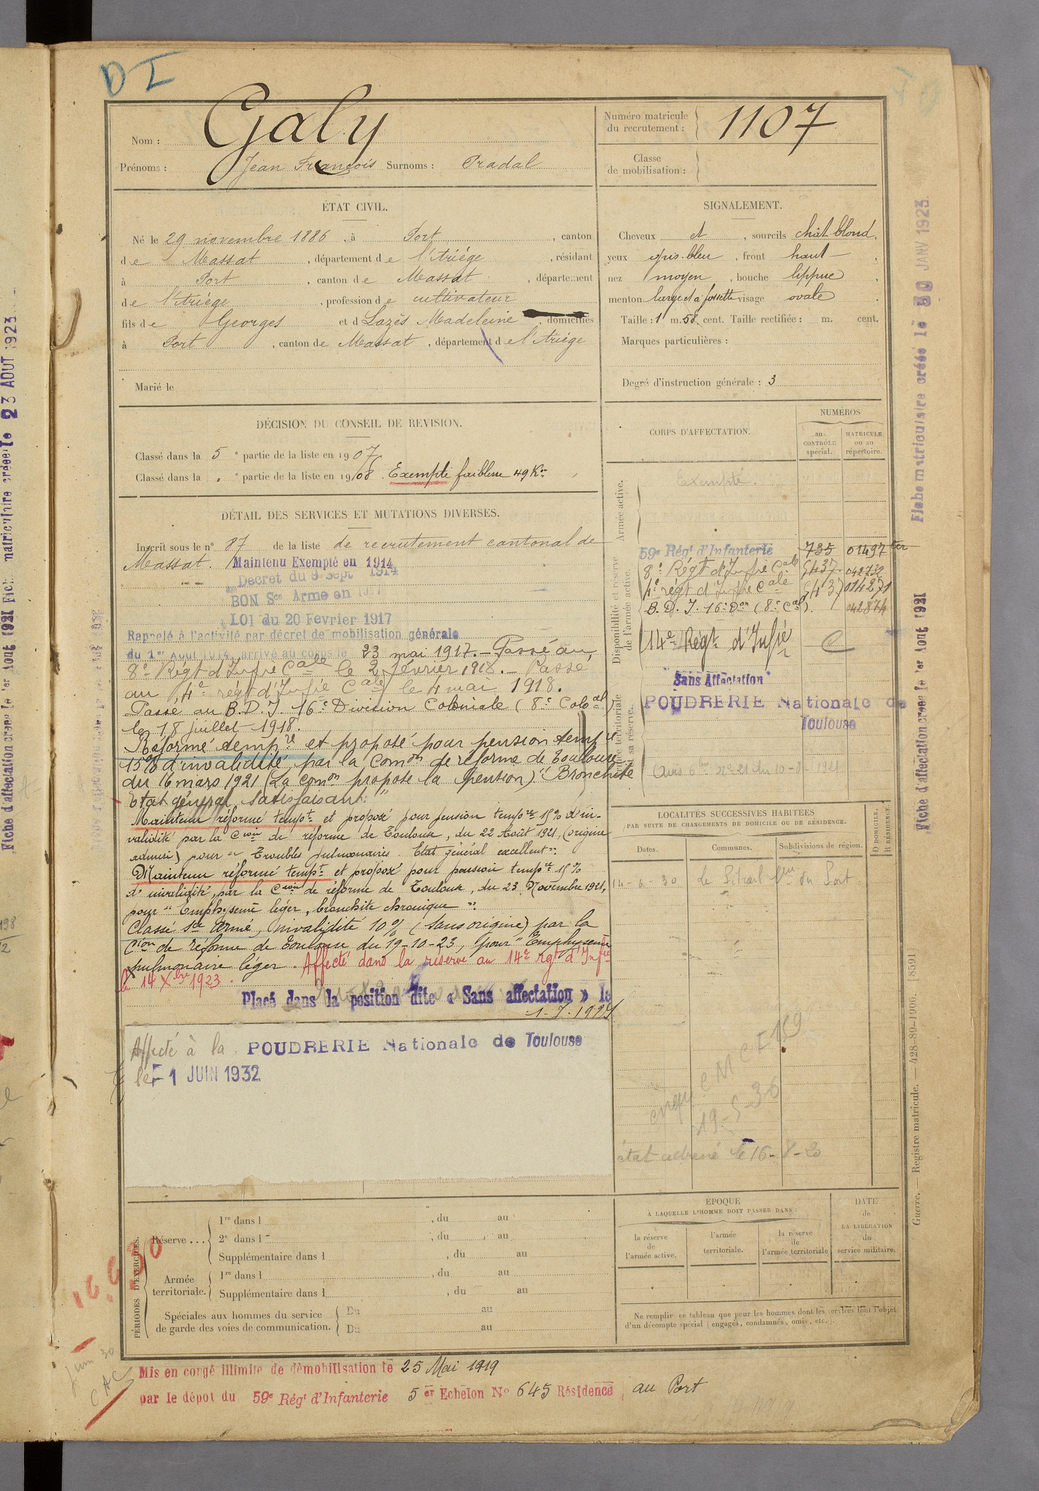 DI
Nom : Galy
Prénoms : Jean François Surnoms : Pradal
Numéro matricule du recrutement : 1107
Classe de mobilisation :
ÉTAT CIVIL.
Né le 29 novembre 1886, à Port, canton
de Massat, département de l'Ariége, résidant
à Port, canton de Massat, département
de l'Ariége, profession de cultivateur
fils de Georges et d Lazès Madeleine, domiciliés
à Port, canton de Massat, département de l'Ariége
Marié le
SIGNALEMENT.
Cheveux et, sourcils chât. blond.
yeux gris-bleu, front haut
nez moyen, bouche lippue
menton large et a fossette visage ovale
Taille : 1 m. 58 cent. Taille rectifiée : m. cent.
Marques particulières :
Degré d'instruction générale : 3
DÉCISION DU CONSEIL DE RÉVISION.
Classé dans la 5e partie de la liste en 1907
Classé dans la " partie de la liste en 1908 Exempté faiblesse 49 Ko
DÉTAIL DES SERVICES ET MUTATIONS DIVERSES.
Inscrit sous le n° 87 de la liste de recrutement cantonal de
Massat. Maintenu Exempté en 1914
Décret du 9 Sept 1914
BON Sce Armé en 1917
LOI du 20 Février 1917
Rappelé à l'activité par décret de mobilisation générale
du 1er Août 1914, arrivé au corps le 23 mai 1917. Passé au
8e Régt d'Infrie Cale le 2 février 1918. Passé
au 4e régt d'Infie Cale le 4 mai 1918.
Passé au B.D.I. 16e Division Coloniale (8e Colal)
le 18 juillet 1918.
Réformé tempre et proposé pour pension tempre
15% d'invalidité par la Comon de réforme de Toulouse
du 16 mars 1921 (La Comon propose la pension) "Bronchite
Etat général satisfaisant"
Maintenu réformé tempre et proposé pour pension tempre 15% d'in-
validité par la Cion de réforme de Toulouse, du 22 Août 1921, (origine
admise) pour "Troubles pulmonaires. Etat général excellent".
Maintenu réformé tempre et proposé pour pension tempre 15%
d'invalidité, par la Cion de réforme de Toulouse, du 23 Novembre 1921,
pour "Emphysème léger, bronchite chronique".
Classé sce Armé, invalidité 10% (sans origine) par la
Cion de réforme de Toulouse du 19-10-23, pour "Emphysème
pulmonaire léger. Affecté dans la réserve au 14e Rgt d'Infie
le 14 Xbre 1923.
Placé dans la position dite « Sans affectation » le
Affecté à la POUDRERIE Nationale de Toulouse
le 1 JUIN 1932
CORPS D'AFFECTATION.
NUMÉROS
au CONTRÔLE spécial.
MATRICULE ou au répertoire.
Armée active.
exempté.
Disponibilité et réserve de l'armée active.
59e Régt d'Infanterie 735 01497 ter
8e Régt d'Infie Cale 5437
4e régt d'Infie Cale 5437 014271
B.D.I. 16e Don (8e Cal)
14e Régt d'Infie
Armée territoriale et sa réserve.
Sans Affectation
POUDRERIE Nationale de
Toulouse
LOCALITÉS SUCCESSIVES HABITÉES
PAR SUITE DE CHANGEMENTS DE DOMICILE OU DE RÉSIDENCE.
Dates.
Communes.
Subdivisions de région.
D DOMICILE. R RÉSIDENCE.
14-6-30
19-5-36
le 16-8-20
PÉRIODES D'EXERCICES.
Réserve ....
1re dans l , du au
2e dans l , du au
Supplémentaire dans l , du au
Armée territoriale.
1re dans l , du au
Supplémentaire dans l , du au
Spéciales aux hommes du service de garde des voies de communication.
Du au
Du au
ÉPOQUE
A LAQUELLE L'HOMME DOIT PASSER DANS :
la réserve de l'armée active.
l'armée territoriale.
la réserve de l'armée territoriale
DATE de LA LIBÉRATION du service militaire.
Ne remplir ce tableau que pour les hommes dont les services font l'objet
d'un décompte spécial (engagés, condamnés, omis, etc.)
Mis en congé illimité de démobilisation le 25 Mai 1919
par le dépôt du 59e Régt d'Infanterie 5er Echelon No 645 Résidence au Port
Fiche matriculaire créée le 30 JANV 1923
Fiche d'affectation créée le 1er Août 1921
Guerre. — Registre matricule. — 428-89-1906. [8591]
Fiche d'affectation créée le 1er Août 1921 Fiche matriculaire créée le 23 AOUT 1923